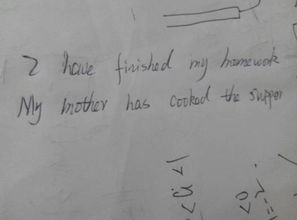 I have finished my homework
My mother has cooked the supper